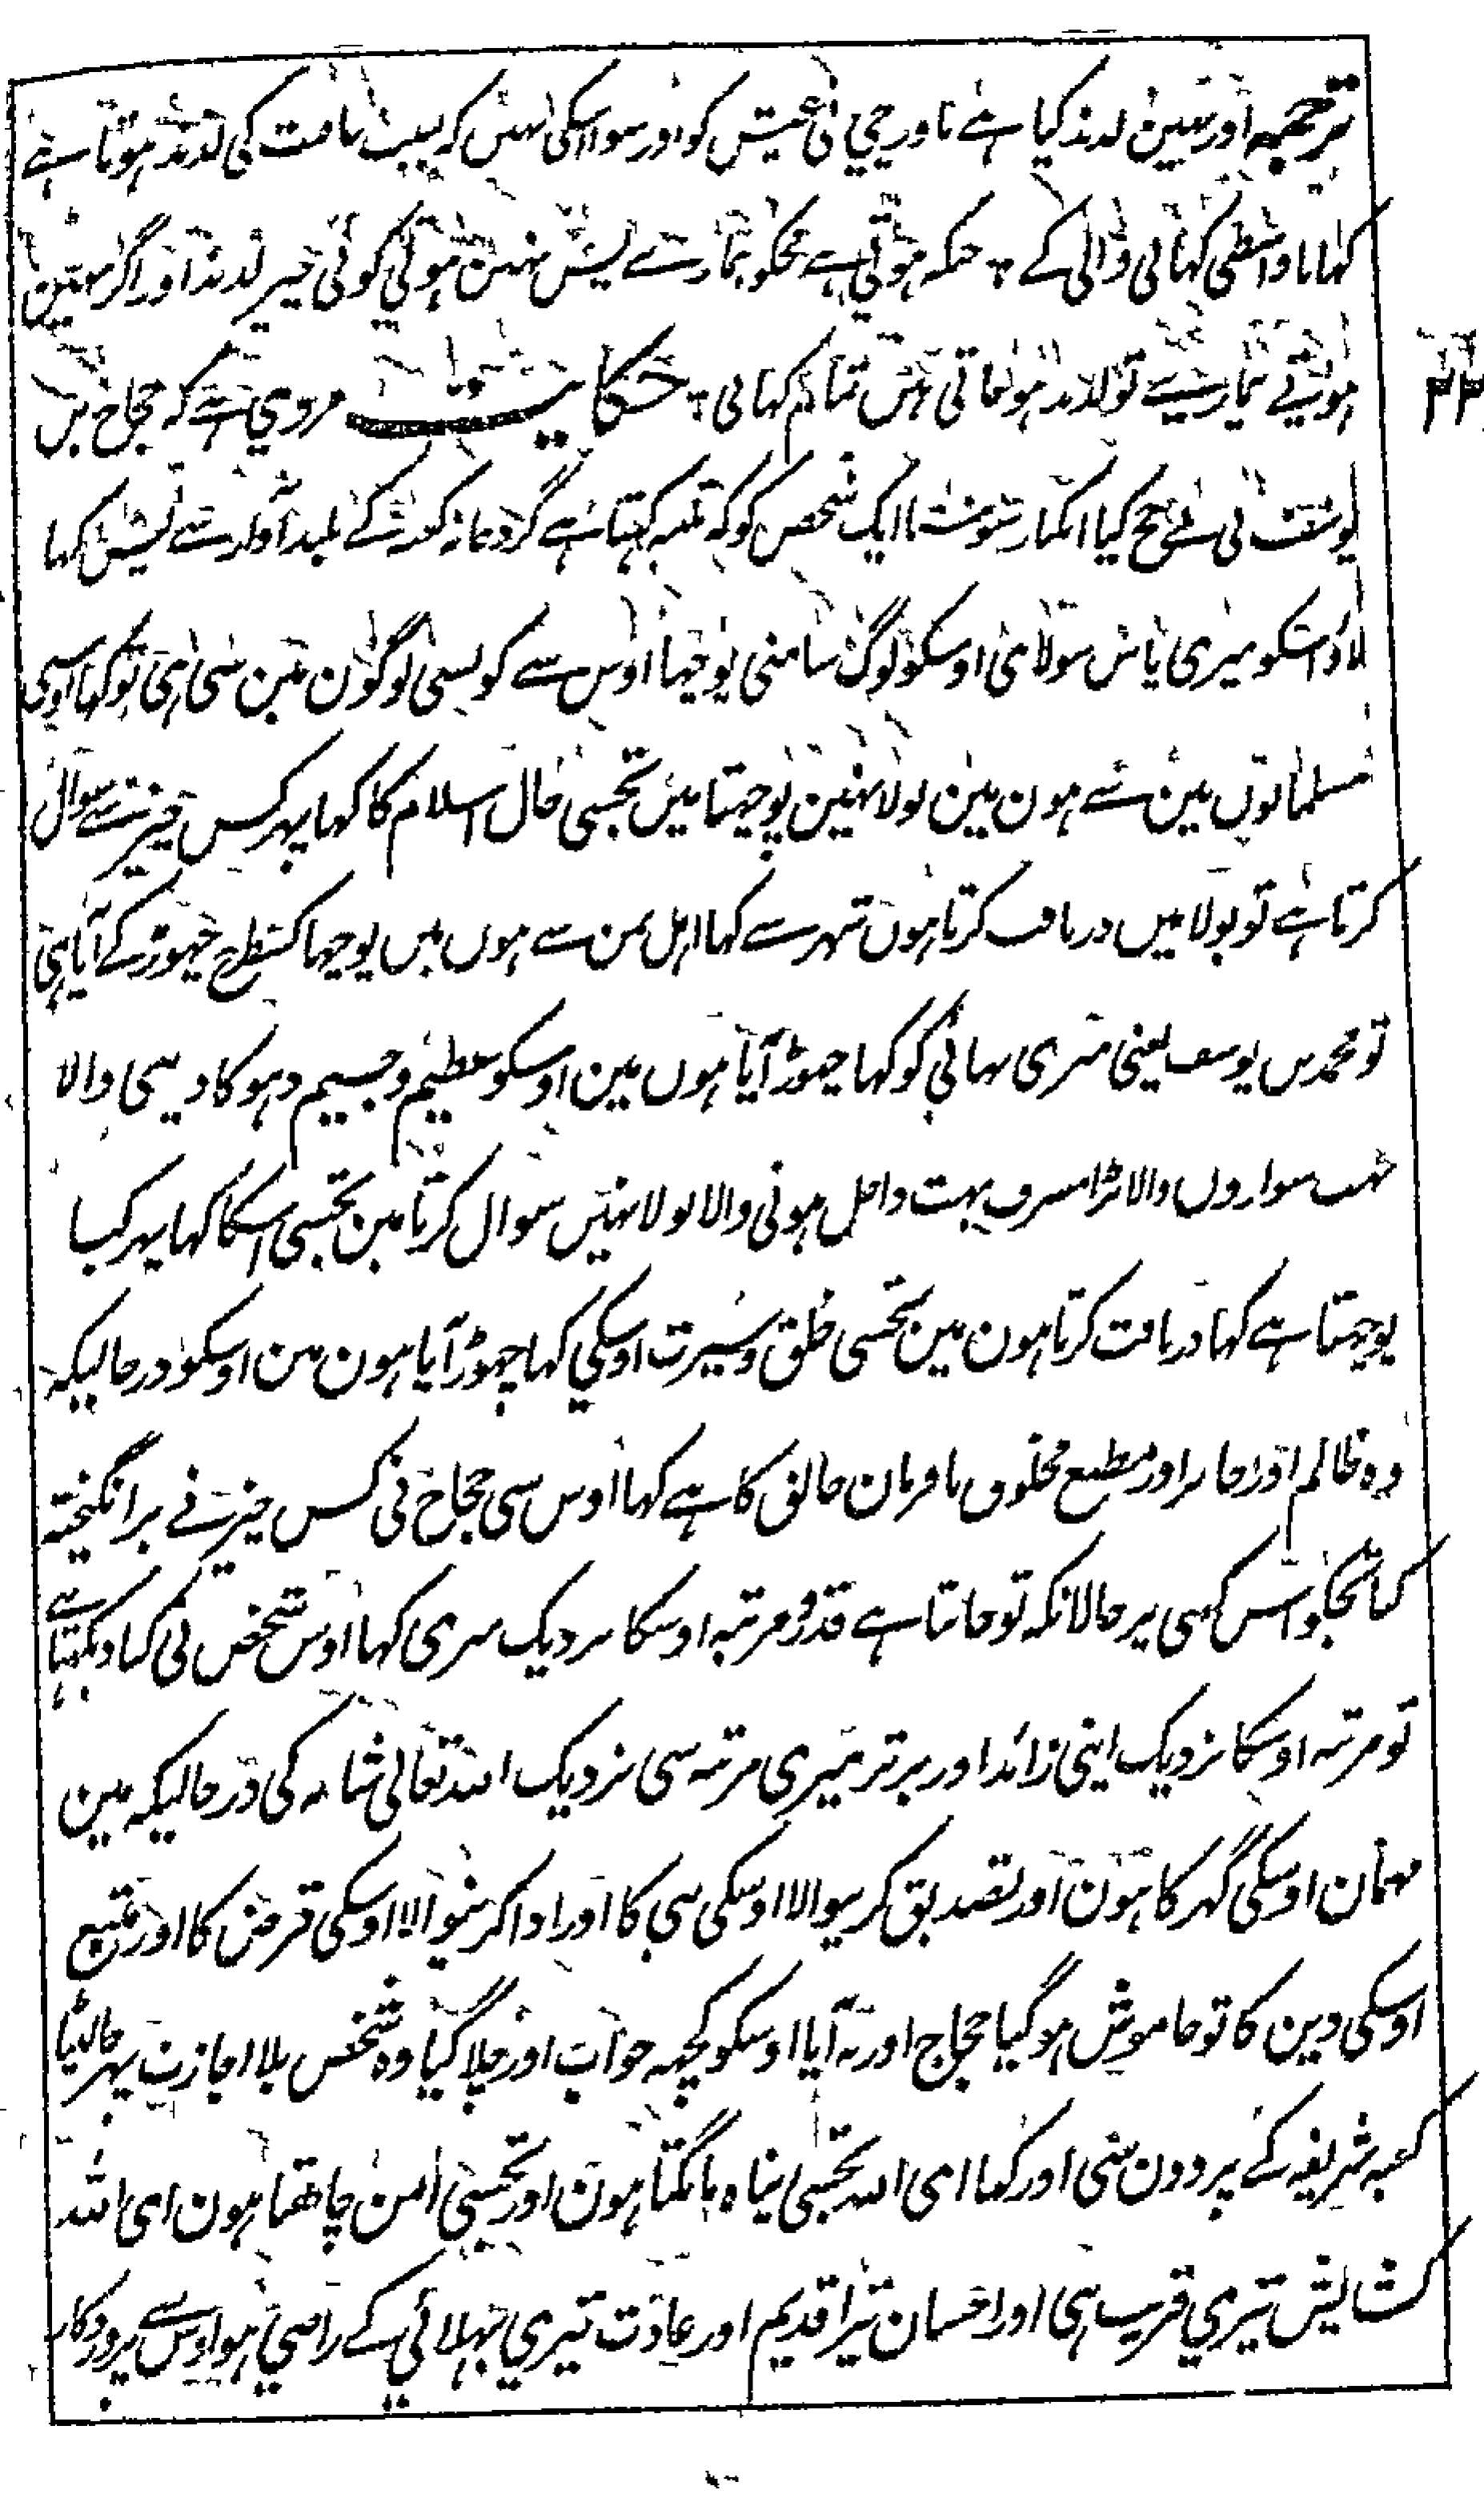 ترجمہ اور نہین لذیذ کیا ہے باورچی نی عیش کو اور سوا اسکی نہین کہ بسبب عافیت کی لذیذ ہوتا ہے
کہانا واسطی کہانی والی کے ؞ جبکہ ہوتی ہے مجکو بیماری سے پس نہین ہوتی کوئی چیز لذیذ اور اگر نہین
ہوتی بیماری سے تو لذیذ ہو جاتی ہین تمام کہانی ؞ حکایت مروی ہے کہ حجاج بن
یوسف نی حج کیا ایکبار تو سنا ایک شخص کو کہ تلبیہ کہتا ہے گرد خانہ کعبہ کے بلند آواز سے پس کہا
لاؤ اسکو میری پاس سو لائی اوسکو لوگ سامنی پوچہا اوس سے کونسی لوگون مین سی ہی تو کہا اوسی
مسلمانوں مین سے ہون مین بولا نہین پوچہتا مین تجہسی حال اسلام کا کہا پہر کس چیز سے سوال
کرتا ہے تو بولا میں دریافت کرتا ہوں شہر سے کہا اہل یمن سے ہوں میں پوچہا کسطرح چہوڑ کے آیا ہی
تو محمد بن یوسف یعنی میری بہائی کو کہا چہوڑ آیا ہوں مین اوسکو عظیم و جسیم دہوکا دینی والا
بہت سواروں والا بڑا مسرف بہت داخل ہونی والا بولا نہین سوال کرتا مین تجہسی اسکا کہا پہر کیا
پوچہتا ہے کہا دریافت کرتا ہون مین تجہسی خلق و سیرت اوسکی کہا چہوڑ آیا ہون مین اوسکو درحالیکہ
وہ ظالم اور جابر اور مطیع مخلوق نافرمان خالق کا ہے کہا اوس سی حجاج نی کس چیز نے برانگیختہ
کیا تجکو اس کہنی پر حالانکہ تو جانتا ہے قدر و مرتبہ اوسکا نزدیک میری کہا اوس شخص نی کیا دیکہتا ہے
تو مرتبہ اوسکا نزدیک اپنی زائد اور برتر میری مرتبہ سی نزدیک اللہ تعالی شانہ کی درحالیکہ مین
مہمان اوسکی گہر کا ہون اور تصدیق کرنیوالا اوسکی نبی کا اور ادا کرنیوالا اوسکی قرض کا اور متبع
اوسکی دین کا تو خاموش ہو گیا حجاج اور نہ آیا اوسکو کچہ جواب اور چلا گیا وہ شخص بلا اجازت پہر جا لپٹا
کعبہ شریفہ کے پردون سی اور کہا ای اللہ تجہی پناہ مانگتا ہون اور تجہسی امن چاہتا ہون ای اللہ
کشایش تیری قریب ہی اور احسان تیرا قدیم اور عادت تیری بہلائی کے راضی ہو اوس سے پروردگار